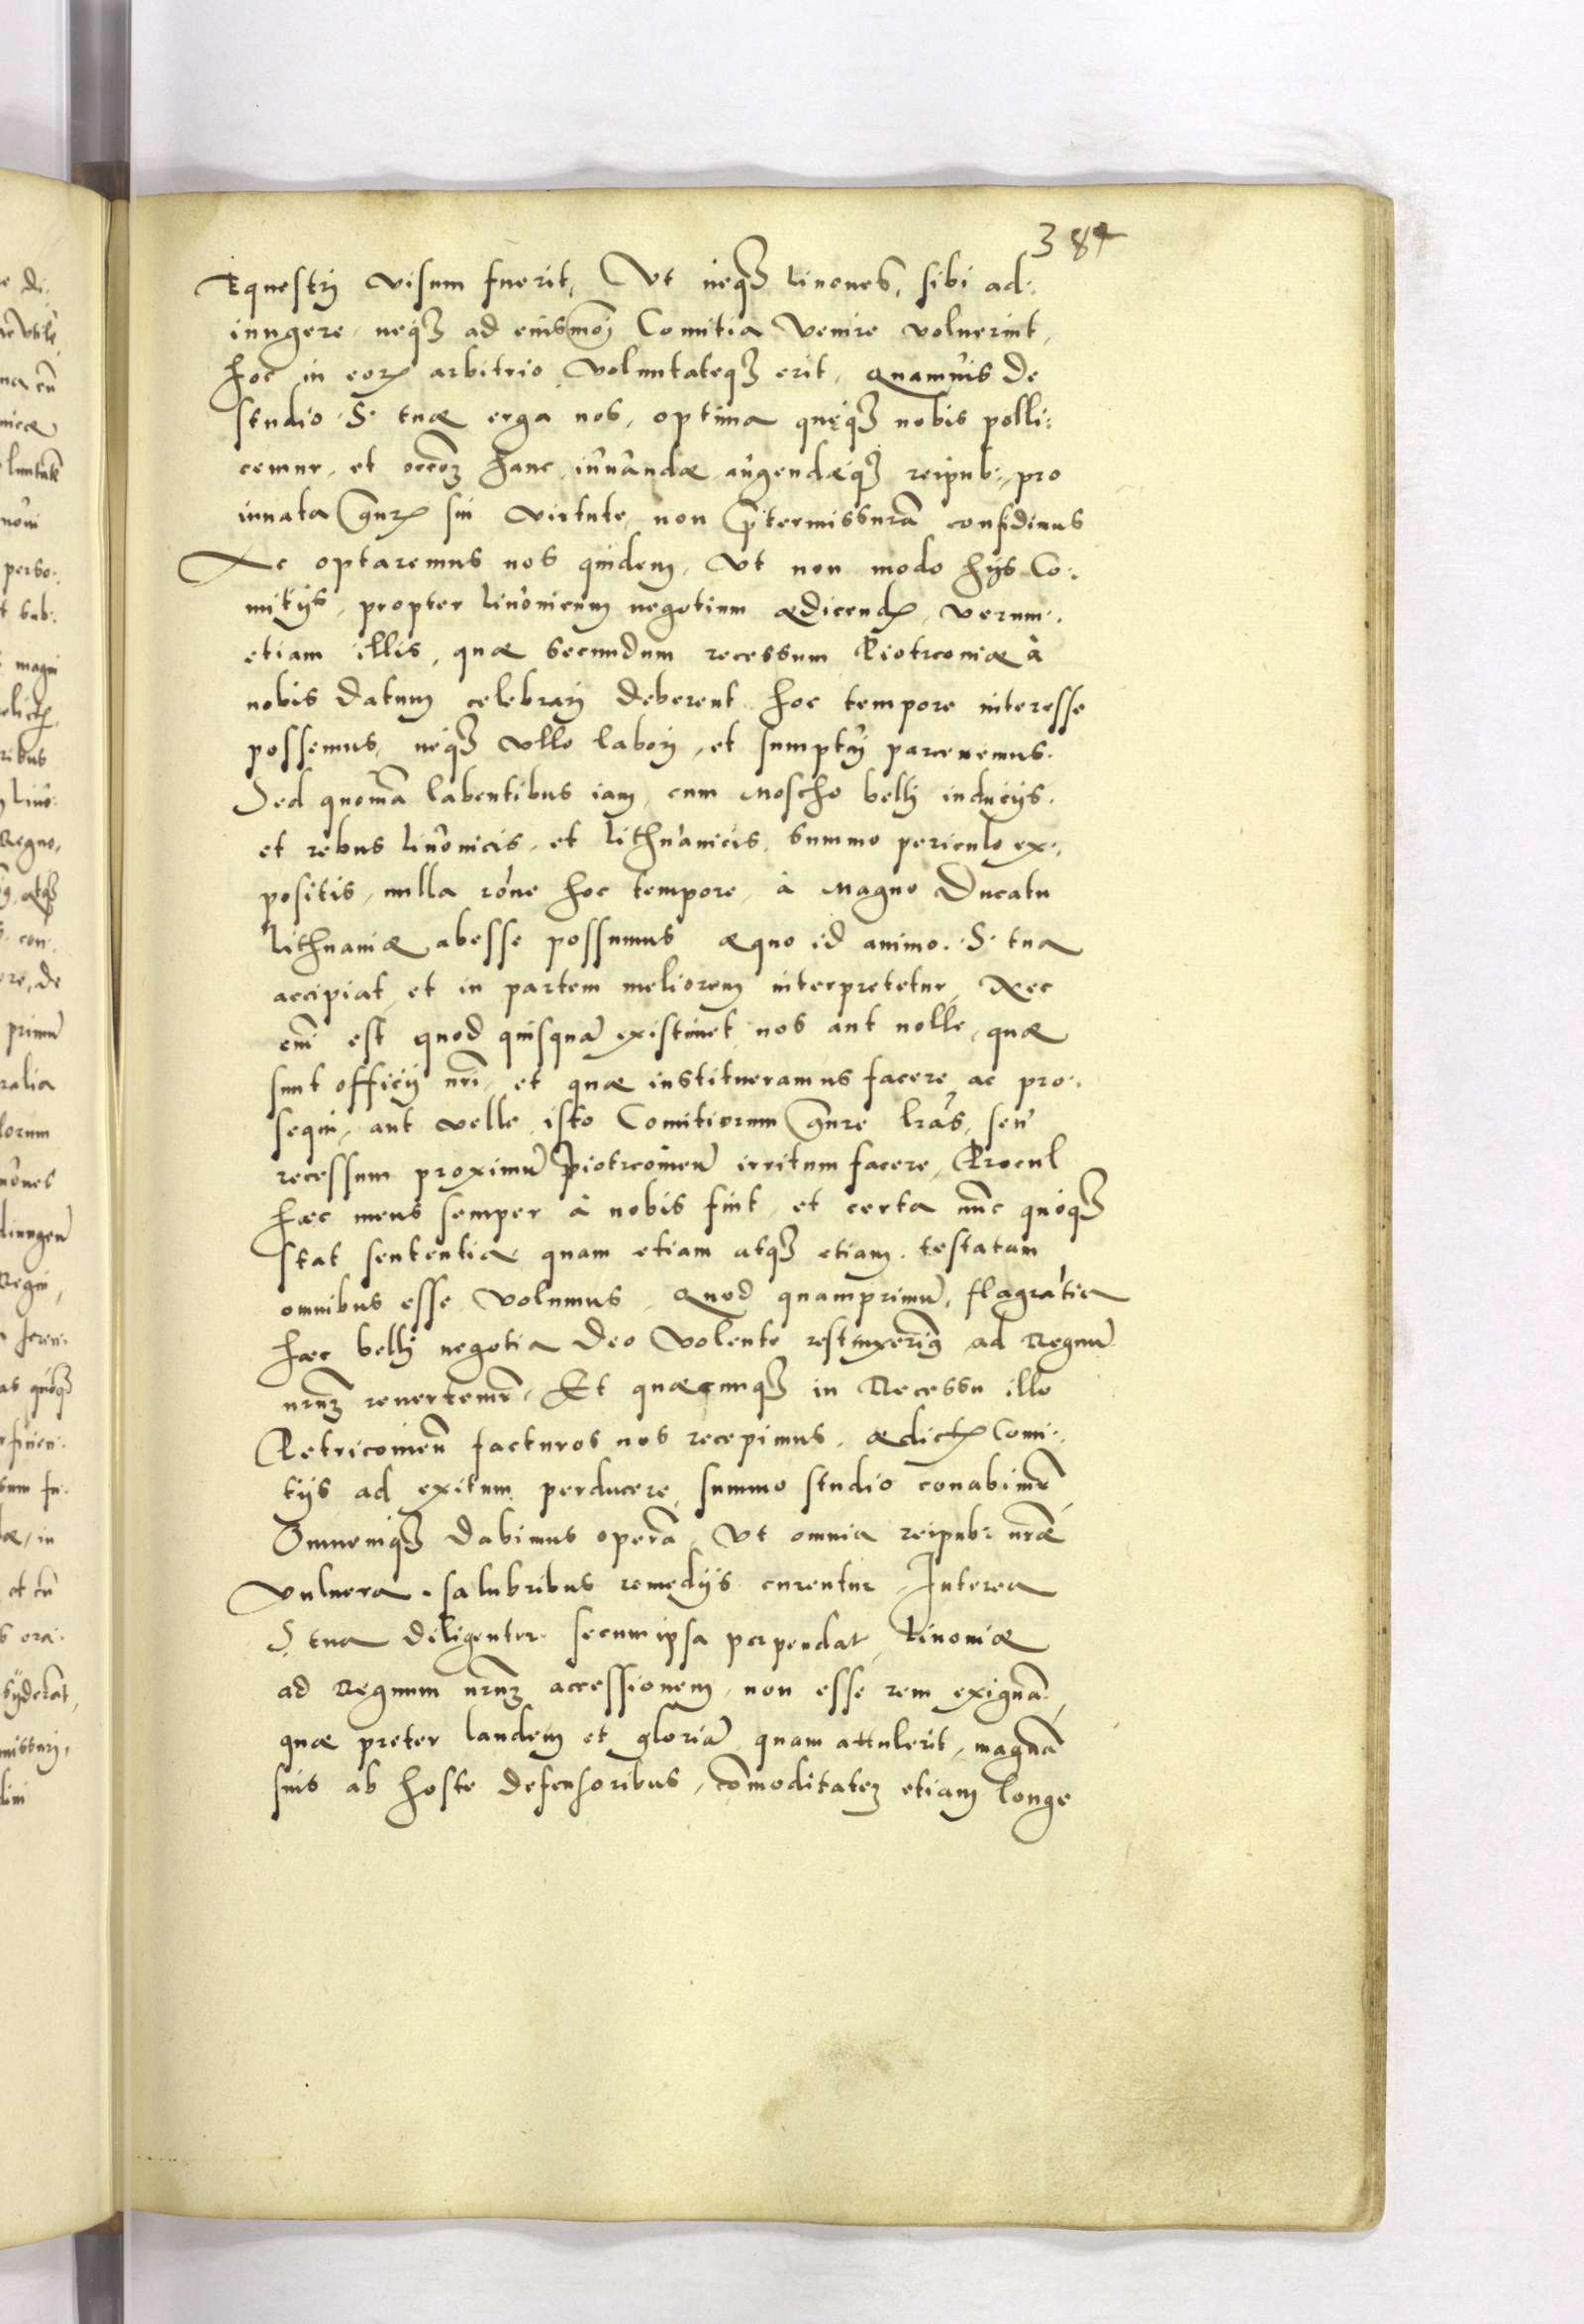 384
Equestrij visum fuerit, Vt neqꝫ Liuones, sibi ad:
iungere, neqꝫ ad eiusmoi Comitia venire voluerint,
hoc in eorꝝ arbitrio voluntateqꝫ erit, Quamuis de
studio S. tuæ erga nos, optima quęqꝫ nobis polli:
cemur, et occõꝫ hanc iuuandæ augendæqꝫ reipub:, pro
innata sui virtute, non p̃termissurã confidimus
Ac optaremus nos quidem, vt non modo hijs Co:
mitijs, propter Liuonicum negotium ædicendꝭ, verum.
etiam illis, quæ secundum recessum Piotrconiæ à
nobis datum celebrarj deberent hoc tempore interesse
possemus, neqꝫ vllo laborj, et sumptuj parceremus.
Sed quoniã labentibus iam, cum Moscho bellj inducijs.
et rebus Liuonicis, et Lithuanicis, summo periculo ex:,
positis, nulla rõne hoc tempore, à Magno Ducatu
Lithuaniæ abesse possumus æquo id animo. S. tua
accipiat, et in partem meliorem interpretetur, Nec
em̃ est quod quisquã existimet nos aut nolle, quæ
sunt officij nr̃i, et quæ institueramus facere ac pro:
sequi, aut velle isto Comitiorum lr̃as, seu
recessum proximũ Piotrcomeñ irritum facere, Procul
hæc mens semper à nobis fuit, et certa nũc quoqꝫ
stat sententia quam etiam atqꝫ etiam. testatam
omnibus esse volumus, Quod quamprimũ, flagrãtia
hæc bellj negotia Deo volente restinxerimꝰ ad Regnũ
nr̃mꝫ reuertemr̃, Et quæcunqꝫ in Recessu illo
Petricouieñ facturos nos recepimus, ædictꝭ Comi:
tijs ad exitum perducere, summo studio conabimr̃,
Omnemqꝫ dabimus operã, vt omnia reipub: nr̃æ
vulnera. salubribus remedijs curentur, Interea
S. tua diligenter secum ipsa perpendat, Liuoniæ
ad Regnum nr̃mꝫ accessionem, non esse rem exiguã,
quæ preter laudem et gloriã quam attulerit, magnã
suis ab hoste defensoribus, cõmoditatem etiam longe